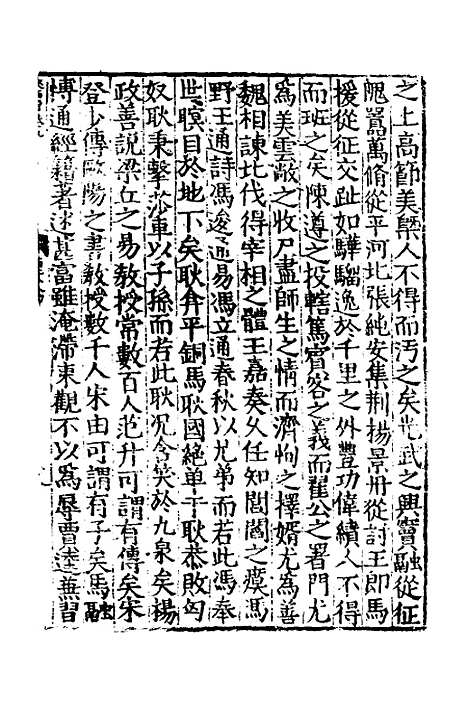 之上高節美槩人不得而汚之矣光武之興竇融從征
隗囂萬脩從平河北張純安集荆揚景丹從討王郎馬
援從征交趾如驊騮逸於千里之外豐功偉績人不得
而班之矣陳遵之投轄篤賓客之義而翟公之署門尤
爲美雲敞之收尸盡師生之情而濟恂之擇婿尤爲善
魏相諫北伐得宰相之體王嘉奏久任知閭閻之瘼馮
野王通詩馮逡通易馮立通春秋以兄弟而若此馮奉
世瞑目於地下矣耿弇平銅馬耿國絶單于耿恭敗匈
奴耿秉擊莎車以子孫而若此耿况含笑於九泉矣楊
政善說梁丘之易教授常數百人范升可謂有傳矣宋
登少傳歐陽之書教授數千人宋由可謂有子矣馬融
博通經籍著述甚富雖淹滯東觀不以爲辱曹逵兼習